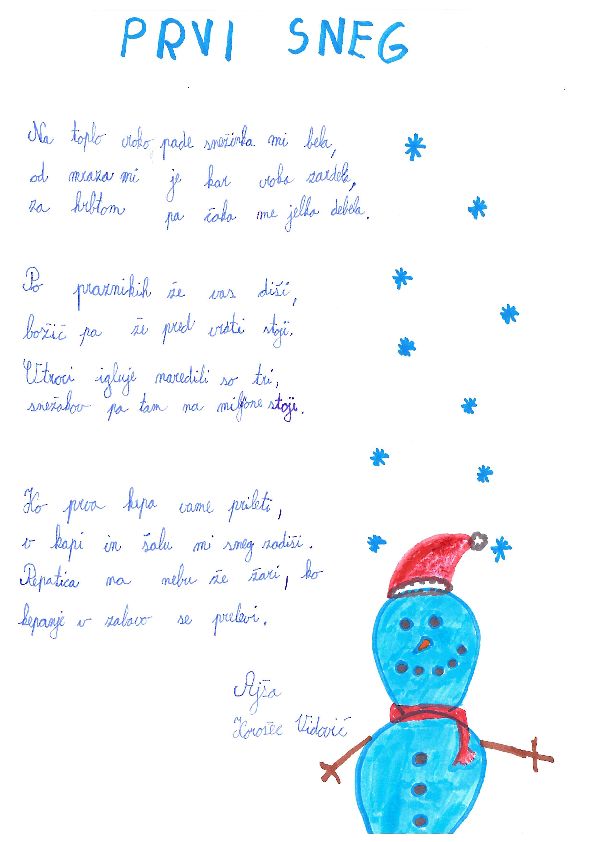 PRVI SNEG
Na toplo roko pade snežinka mi bela,
od mraza mi je kar roka zardela,
za hrbtom pa čaka me jelka debela.
Po praznikih že vas diši,
božič pa že pred vrati stoji.
Otroci igluje naredili so tri,
snežakov pa tam na miljone stoji.
Ko prva kepa vame prileti,
v kapi in šalu mi sneg zadiši.
Repatica na nebu že žari, ko
kepanje v zabavo se prelevi.
Ajša
Korošec Vidović